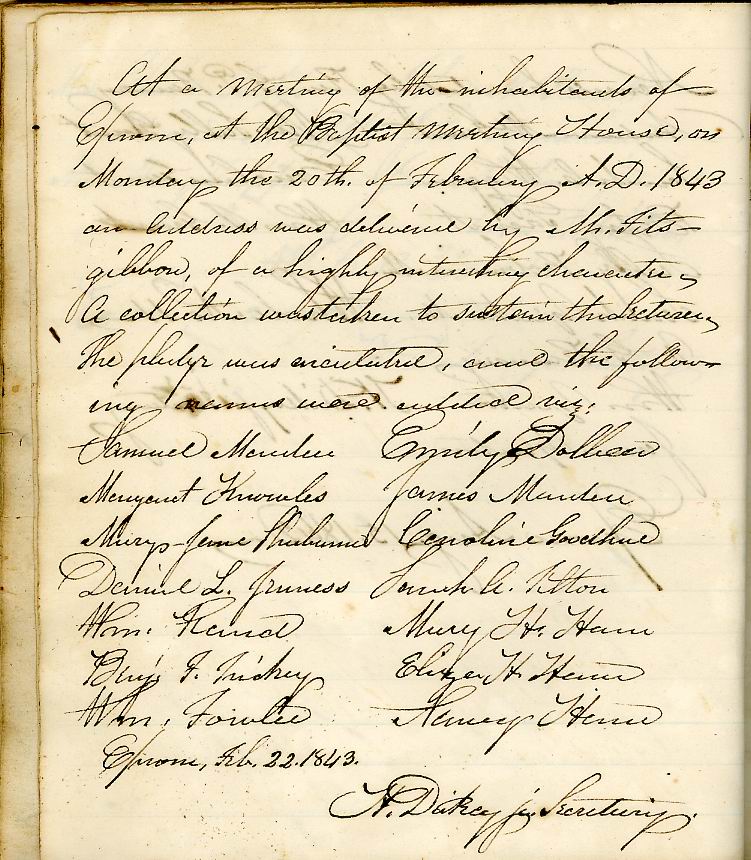 At a meeting of the inhabitants of
Epsom, at the Baptist Meeting House, on
Monday the 20th. of February A.D. 1843
an address was delivered by Mr. Fits-
gibbon, of a highly interesting character,
A collection was taken to sustain the Lecturer,
the pledge was circulated, and the follow-
ing names were added viz.
Samuel Marden Emily Dolbear
Margaret Knowles James Marden
Mary Jane Caroline Goodhue
Daniel L. Jenness Sarah A. Tilton
Wm. Mary H. Ham
Benj. F. Trickey Eliza H. Ham
Wm. Fowler Nancy Ham
Epsom, Feb. 22. 1843.
H. Jr. Secretary.